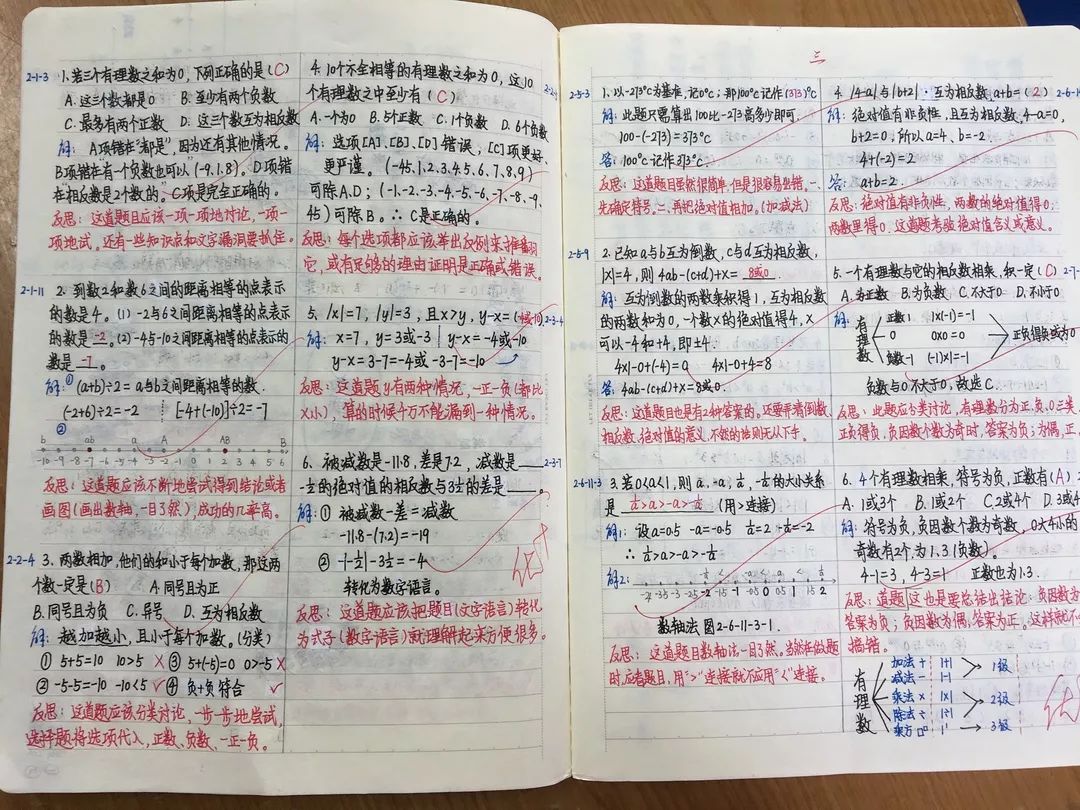 2-1-3 1.若三个有理数之和为0,下列正确的是(C)
A.这三个数都是0 B.至少有两个负数
C.最多有两个正数 D.这三个数互为相反数
解:A项错在"都是",因为还有其他情况。
B项错在有一个负数也可以(-9.1.8)。D项错
在相反数是2个数的。C项是完全正确的。
反思:这道题目应该一项一项地讨论,一项一
项地试,还有一些知识点和文字漏洞要抓住。
2-1-11 2.到数2和数6之间的距离相等的点表示
的数是4。(1)-2与6之间距离相等的点表示
的数是-2。(2)-4与-10之间距离相等的点表示的
数是-7。
解:① (a+b)÷2=a与b之间距离相等的数.
(-2+6)÷2=-2 [-4+(-10)]÷2=-7
②
b ab a A AB B
-10 -9 -8 -7 -6 -5 -4 -3 -2 -1 0 1 2 3 4 5 6
反思:这道题应该不断地尝试得到结论或者
画图(画出数轴,一目了然),成功的几率高。
2-2-4 3.两数相加,他们的和小于每个加数,那这两
个数一定是(B) A.同号且为正
B.同号且为负 C.异号 D.互为相反数
解:越加越小,且小于每个加数。(分类)
① 5+5=10 10>5 × ③ 5+(-5)=0 0>-5 ×
② -5-5=-10 -10<5 ✓ ④ 负+负 符合 ✓
反思:这道题应该分类讨论,一步一步地尝试,
选择题将选项代入,正数、负数、一正一负。
4.10个不全相等的有理数之和为0,这10
个有理数之中至少有(C)
A.一个为0 B.5个正数 C.1个负数 D.6个负数
解:选项[A].[B].[D]错误,[C]项更好、
更严谨。(-45.1.2.3.4.5.6.7.8.9)
可除A.D;(-1.-2.-3.-4.-5.-6.-7.-8.-9.
45)可除B。∴C是正确的。
反思:每个选项都应该举出反例来推翻
它,或有足够的理由证明是正确或错误。
5.|x|=7,|y|=3,且x>y,y-x=(-4或-10) 2-3-4
解:x=7,y=3或-3 y-x=-4或-10
y-x=3-7=-4或-3-7=-10
反思:这道题y有两种情况,一正一负(都比
x小),算的时候千万不能漏到一种情况。
6.被减数是-11.8,差是7.2,减数是 2-3-7
-½的绝对值的相反数与3½的差是 。
解:① 被减数-差=减数
-11.8-(7.2)=-19
② -|-½|-3½=-4
转化为数字语言。
反思:这道题应该把题目(文字语言)转化
为式子(数字语言)就理解起来方便很多。
优+
三
2-5-3 1.以-273°C为基准,记0°C;那100°C记作(373)°C
解:此题只需算出100比-273高多少即可.
100-(-273)=373°C
答:100°C记作373°C
反思:这道题虽然很简单,但是很容易出错。一、
先确定符号。二、再把绝对值相加。(加减法)
2-5-9 2.已知a与b互为倒数,c与d互为相反数,
|x|=4,则4ab-(c+d)+x= 8或0.
解:互为倒数的两数乘积得1,互为相反数
的两数和为0,一个数x的绝对值得4,x
可以-4和+4,即±4.
4x1-0+(-4)=0 4x1-0+4=8
答:4ab-(c+d)+x=8或0.
反思:这道题目也是有2种答案的,还要弄清倒数、
相反数、绝对值的意义,不然的话则无从下手。
2-6-11-3 3.若0<a<1,则a,-a,1/a,-1/a的大小关系
是 1/a>a>-a>-1/a (用>连接)
解1:设a=0.5 -a=-0.5 1/a=2 -1/a=-2
∴1/a>a>-a>-1/a
解2:
数轴法 图2-6-11-3-1.
反思:这道题目数轴法一目了然。当然在做题
时,应看题目,用">"连接就不应用"<"连接。
4.|4-a|与|b+2|互为相反数,a+b=(2)
解:绝对值有非负性,且互为相反数,4-a=0,
b+2=0,所以a=4.b=-2.
4+(-2)=2
答:a+b=2.
反思:绝对值有非负性,两数的绝对值得0.
两数里得0.这道题考验绝对值含义或意义。
5.一个有理数与它的相反数相乘,积一定(C)
A.为正数 B.为负数 C.不大于0 D.不小于0
解:有理数 正数1 1x(-1)=-1
0 0x0=0
负数-1 (-1)x1=-1
负数与0不大于0,故选C.
反思:此题应分类讨论,有理数分为正.负.0三类
正负得负,负因数个数为奇时,答案为负;为偶,正.
6.4个有理数相乘,符号为负,正数有(A)
A.1或3个 B.1或2个 C.2或4个
解:符号为负,负因数个数为奇数,0大4小的
奇数有2个,为1.3(负数)。
4-1=3,4-3=1 正数也为1.3.
反思:道题这也是要总结出结论:负因数为
答案为负;负因数为偶,答案为正。这样就不
搞错。
有理数
加法 + 1+1
减法 - 1-1 1级
乘法 × 1×1
除法 ÷ 1÷1 2级
乘方 3级